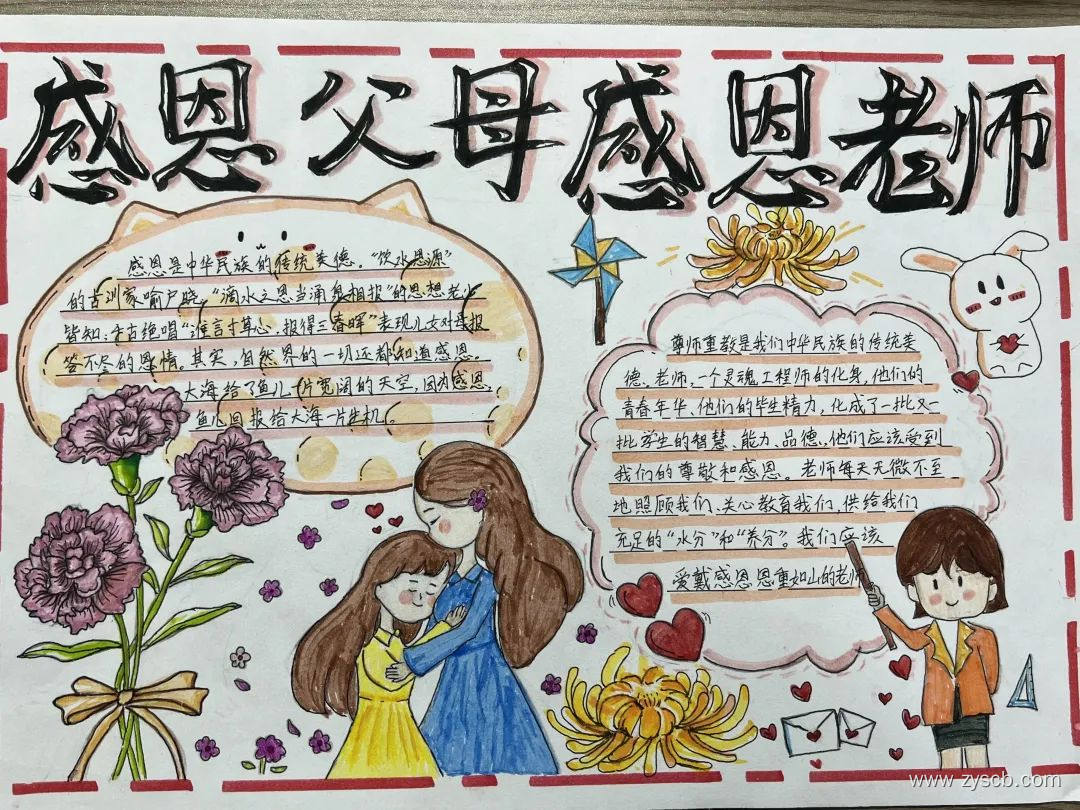 感恩父母感恩老师
感恩是中华民族的传统美德。“饮水思源”
的古训家喻户晓，“滴水之恩当涌泉相报”的思想老少
皆知；千古绝唱“谁言寸草心，报得三春晖”表现儿女对母报
答不尽的恩情。其实，自然界的一切还都知道感恩。
大海给了鱼儿一片宽阔的天空，因为感恩，
鱼儿回报给大海一片生机。
尊师重教是我们中华民族的传统美
德。老师，一个灵魂工程师的化身，他们的
青春年华、他们的毕生精力，化成了一批又一
批学生的智慧、能力、品德，他们应该受到
我们的尊敬和感恩。老师每天无微不至
地照顾我们、关心教育我们，供给我们
充足的“水分”和“养分”。我们应该
爱戴感恩恩重如山的老师
www.zyscb.com